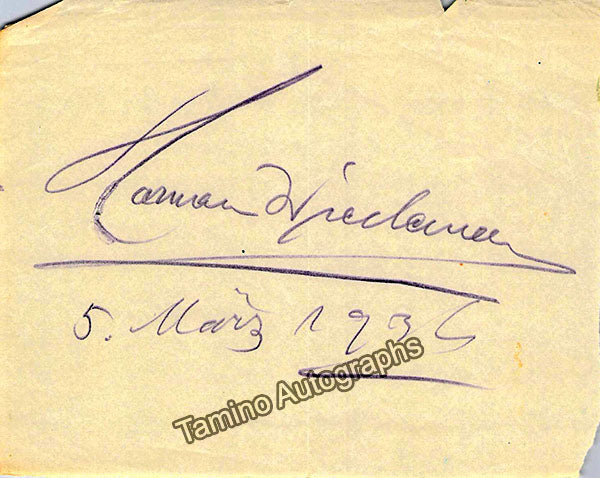 Hermann Wiedemann
5. März 1936
Tamino Autographs